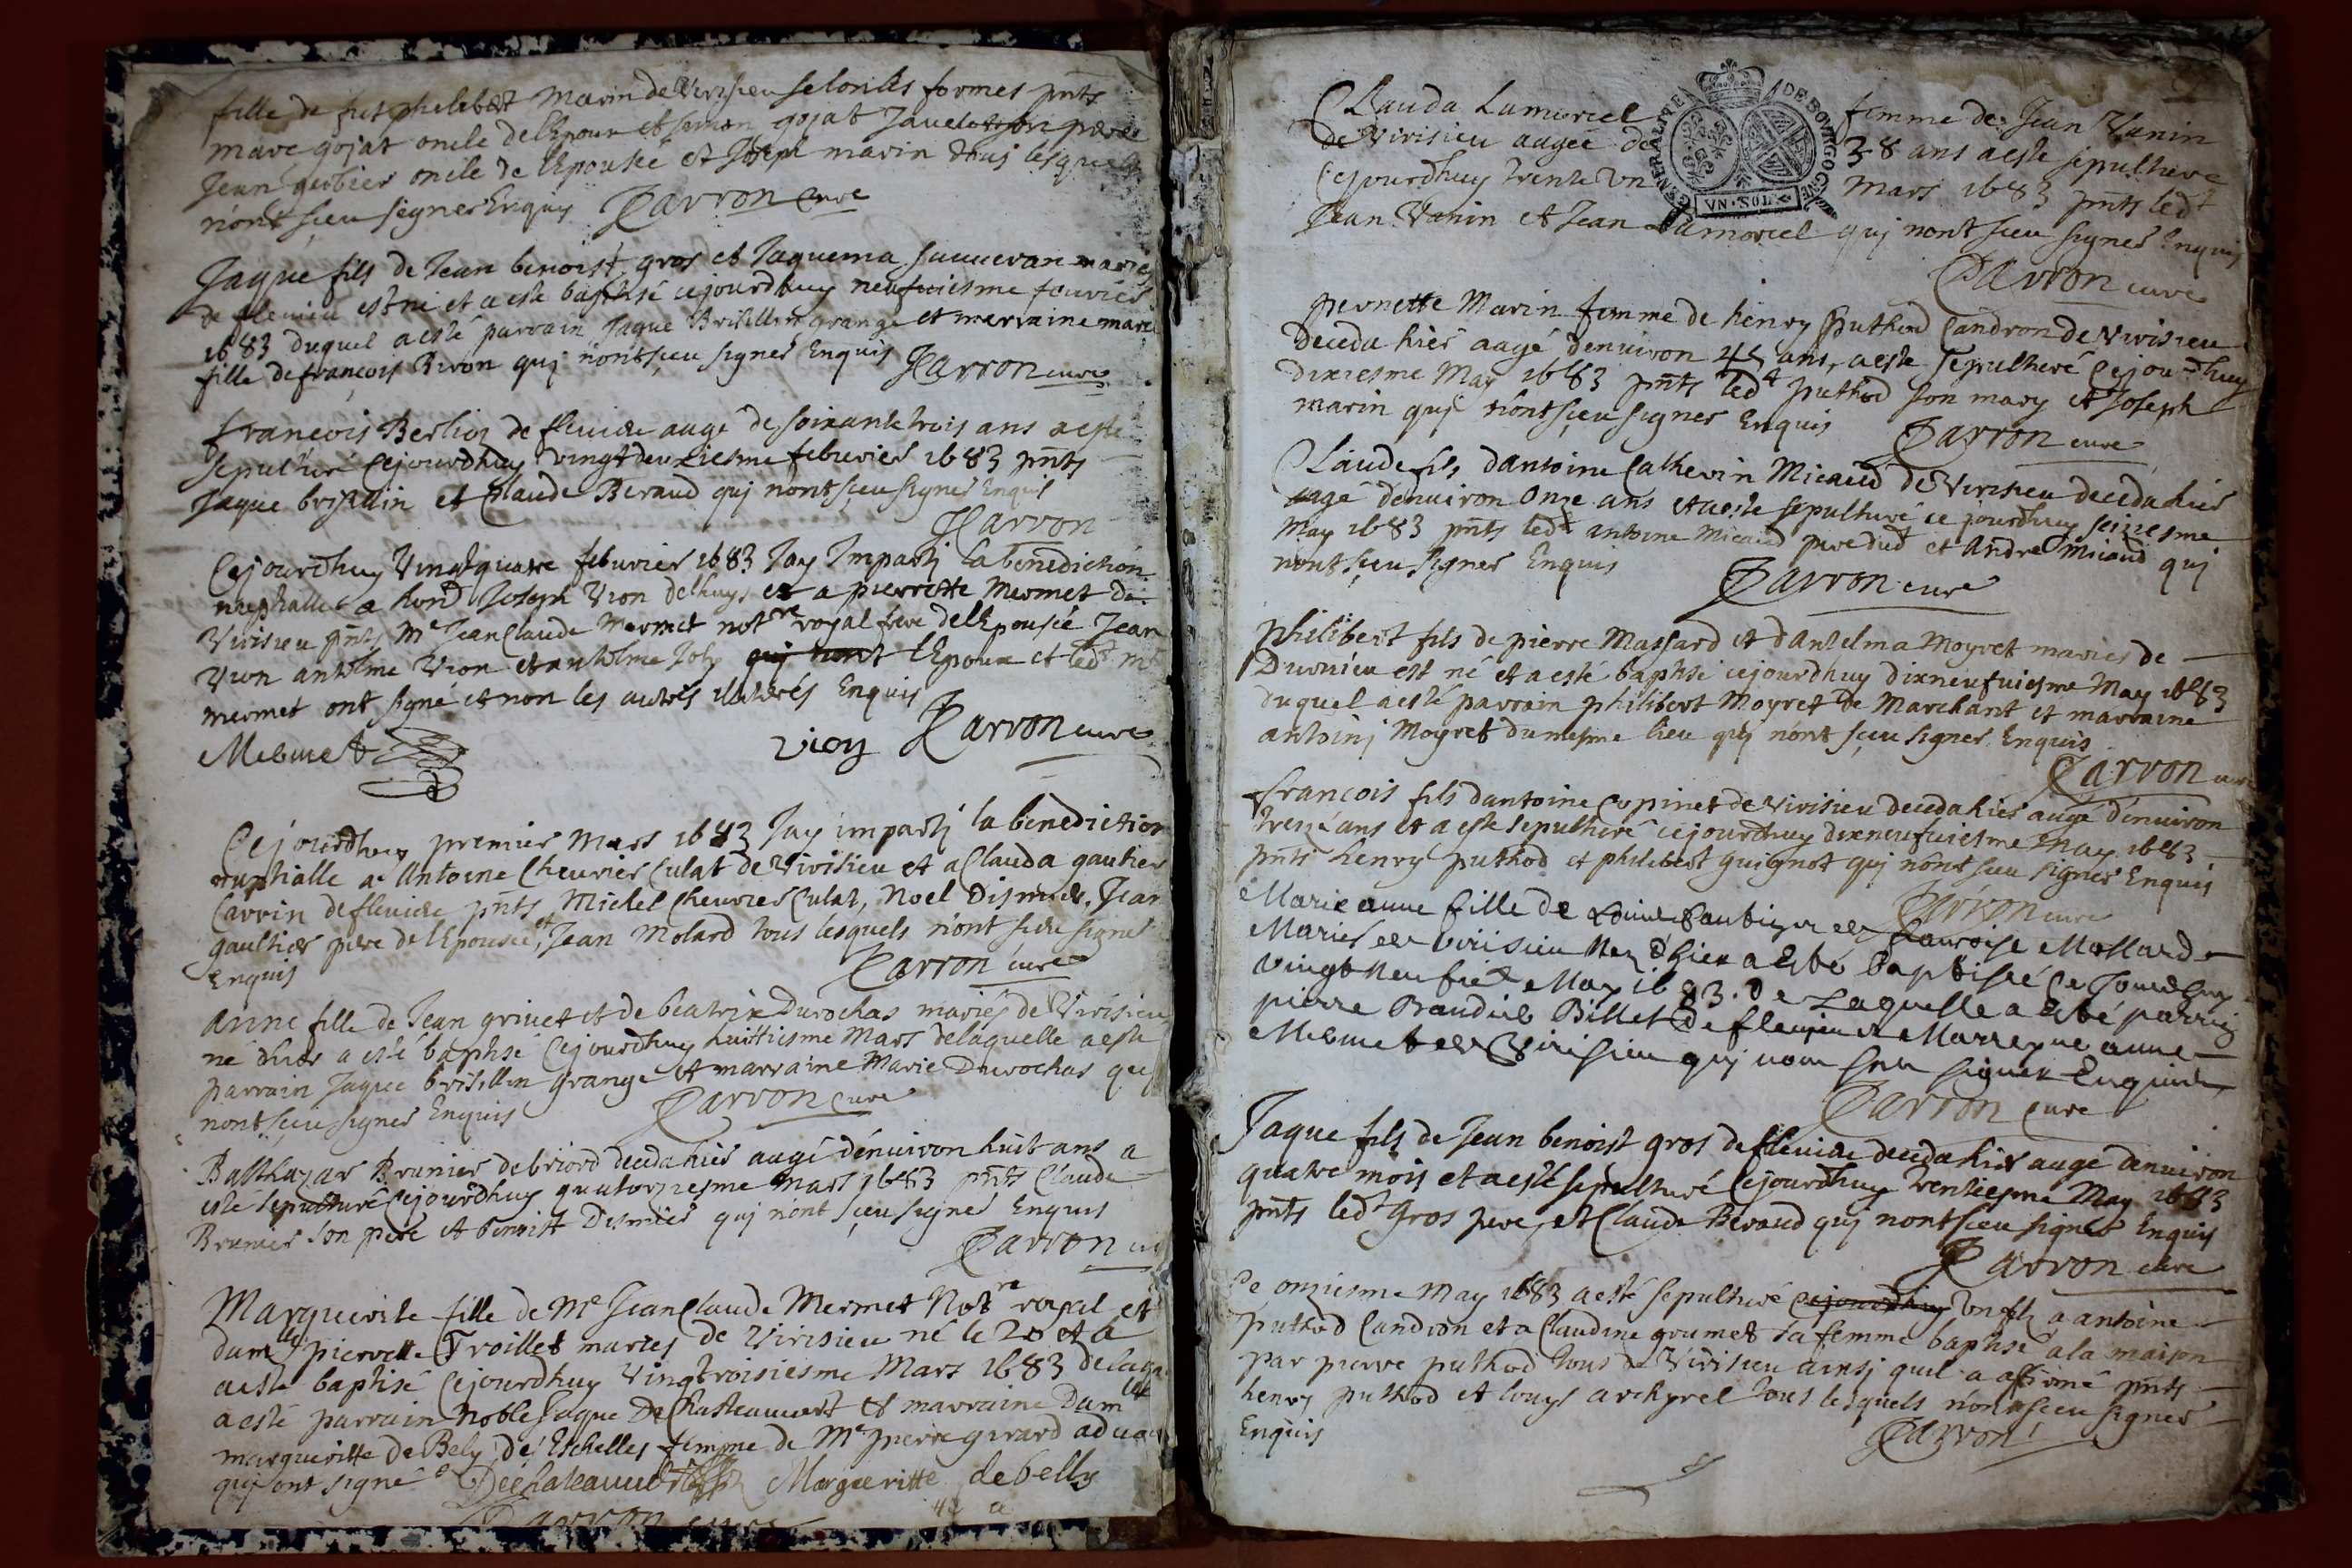 fille de fut philebert Marin de Virisieu selon les formes pnts
marc gojat oncle de lEpoux et simon gojat Javelot son
Jean gerbier oncle de lEpousée et Joseph marin tous lesquels
n'ont sçeu signer Enquis Parron Cure
Jaque fils de Jean benoist gros et Jaquema mariés
de fleuieu est né et a esté baptisé cejourdhuy neufuiesme feuvrier
1683 duquel a esté parrain Jaque Brisillin grange et marraine marie
fille de françois Biron qui n'ont sçeu signer Enquis Parron cure
francois Berlioz de fleuieu augé de soixante trois ans a este
sepulturé Cejourdhuy vingt deuxiesme febuvrier 1683 pnts
Jaque brisillin et Claude Beraud qui n'ont sçeu signer Enquis
Parron
Cejourdhuy Vingtquatre febuvrier 1683 Jay Imparti La benediction
nupthalle a hond Joseph Vion delhuys et a pierrette Mermet de
Virisieu pnts Me Jean Claude Mermet notre royal frere de lEpousée Jean
Vion antelme Vion et antelme Joly qui n'ont lEpoux et ledt Me
mermet ont signé et non les autres illiterés Enquis
Mermet vion Parron cure
Cejourdhuy premier Mars 1683 Jay imparti la benediction
nupthialle a Antoine Cheurier Culat de Virisieu et a Clauda gautier
Carrin de fleuieu pnts Michel Cheurier Culat, Noel Dismier, Jean
gaultier pere de lEpousée, et Jean Molard tous lesquels n'ont sceu signer
Enquis Parron cure
Anne fille de Jean grinet et de beatrix Durochas mariés de Virisieu
né dhier a esté baptisé Cejourdhuy huittiesme Mars delaquelle a este
parrain Jaque brisillin grange et marraine Marie Durochas qui
n'ont sçeu signer Enquis Parron Cure
Balthazar Brunier de briord deceda hier augé d'enuiron huit ans a
esté sepulturé Cejourdhuy quatorziesme mars 1683 pnts Claude
Brunier son pere et benoist Dismier qui n'ont sçeu signer Enquis
Parron
Marguerite fille de Me Jean Claude Mermet Notre royal et
damlle pierrette Troillet mariés de Virisieu né le 20 et a
aesté baptisé Cejourdhuy Vingtroisiesme Mars 1683 delaqu
a esté parrain Noble Jaque De Chasteauuert et marraine Damlle
margueritte de Bely dé Eschelles femme de Me pierre girard aduo
qui ont signé Margueritte debelly
Parron cure
Clauda Lamorcel femme de Jean Vanin
de Virisieu augée de 38 ans a esté sepulturé
Cejourdhuy trente Un Mars 1683 pnts ledt
GENERALITE DE BOVRGOGNE
VN·SOL
Jean Vanin et Jean Lamorcel qui n'ont sceu signer Enquis
Parron cure
pernette Marin femme de henry puthod Candron de Virisieu
deceda hier augé denuiron 45 ans, a esté sepulturé Cejourdhuy
dixiesme May 1683 pnts ledt puthod son mary et Joseph
marin qui n'ont sçeu signer Enquis Parron cure
Claude fils d'Antoine Catherin Micaud de Virisieu deceda hier
augé denuiron Onze ans et a este sepulturé cejourdhuy seiziesme
May 1683 pnts ledt antoine Micaud pere dudt et André Micaud qui
n'ont sçeu signer Enquis Parron cure
Philibert fils de pierre Massard et d'Antelma Moyret mariés de
est né et a esté baptisé cejourdhuy dixneufuiesme May 1683
duquel a esté parrain philibert Moyret de Marchant et marraine
antoini Moyret du mesme lieu qui n'ont sçeu signer Enquis
Parron cure
francois fils dantoine Copinet de Virisieu deceda hier augé d'enuiron
treize ans et a esté sepulturé cejourdhuy dixneufuiesme may 1683
pnts henry puthod et philibert guignot qui n'ont sceu signer Enquis
Parron cure
Marie anne fille de et francoise Mollard
Mariés de Virisieu Nez d'hier a esté baptisée Ce Jourdhuy
vingt neufie May 1683. de Laquelle a esté parrin
pierre Baudin Billet de fleuieu et Marreyne anne
Mermet de Virisieu qui n'ont sceu signer Enquis
Parron Cure
Jaque fils de Jean benoist gros de fleuieu deceda hier augé denuiron
quatre mois et a esté sepulturé Cejourdhuy trentiesme May 1683
pnts ledt Gros pere, et Claude Beraud qui n'ont sceu signer Enquis
Parron cure
Ce onziesme May 1683 a esté sepulturé Cejourdhuy Un fils a antoine
puthod Candron et a Claudine groumet sa femme baptisé a la maison
par pierre puthod tous de Virisieu ainsi quil a affirmé pnts
henry puthod et louys archyrel tous lesquels n'ont sceu signer
Enquis Parron